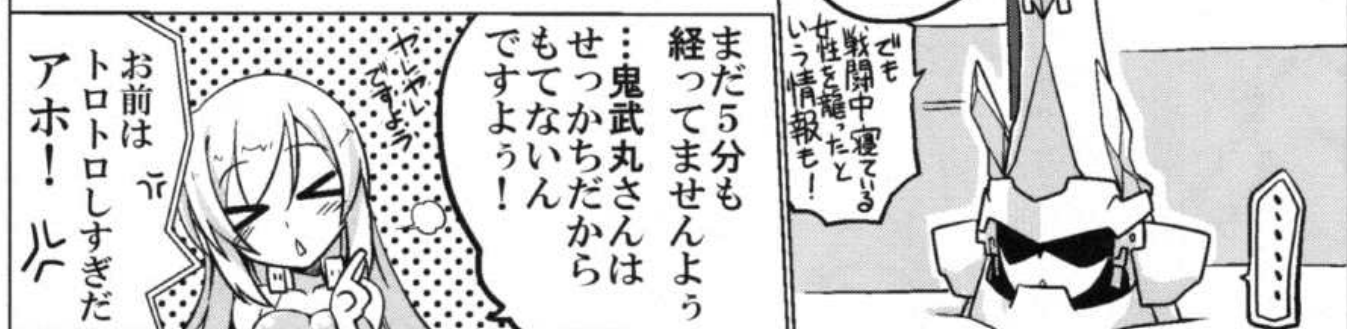 ……
でも
戦闘中寝ている
女性を襲ったと
いう情報も！
まだ5分も
経ってませんよぅ
…鬼武丸さんは
せっかちだから
もてないん
ですよぅ！
ヤレヤレ
ですよぅ
お前は
トロトロしすぎだ
アホ！